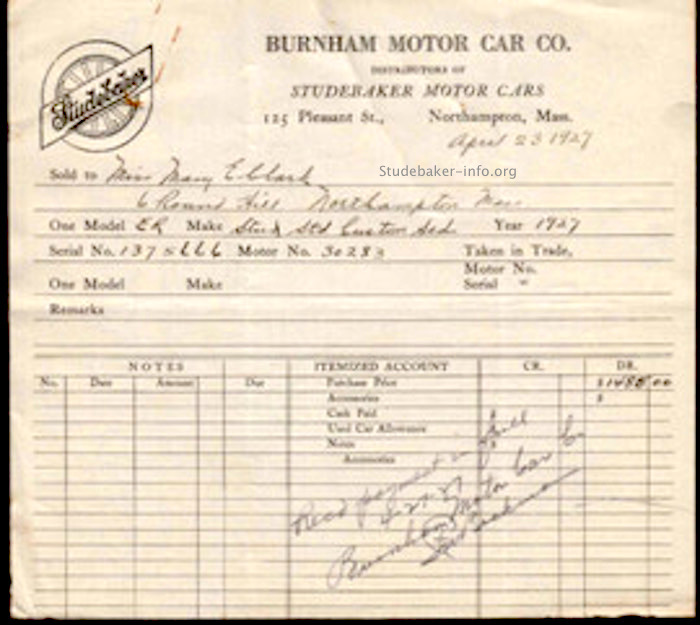 Studebaker
BURNHAM MOTOR CAR CO.
DISTRIBUTORS OF
STUDEBAKER MOTOR CARS
125 Pleasant St., Northampton, Mass.
April 23 1927
Studebaker-info.org
Sold to Miss Mary E. Clark
6 Round Hill Northampton Mass
One Model ER Make Stud Std Custom Sed. Year 1927
Serial No. 1375666 Motor No. 30283 Taken in Trade,
Motor No.
One Model Make Serial "
Remarks
NOTES ITEMIZED ACCOUNT CR. DR.
No. Date Amount Due Purchase Price $1485.00
Accessories $
Cash Paid $
Used Car Allowance
Notes $
Accessories
Recd payment in full
Burnham Motor Car Co